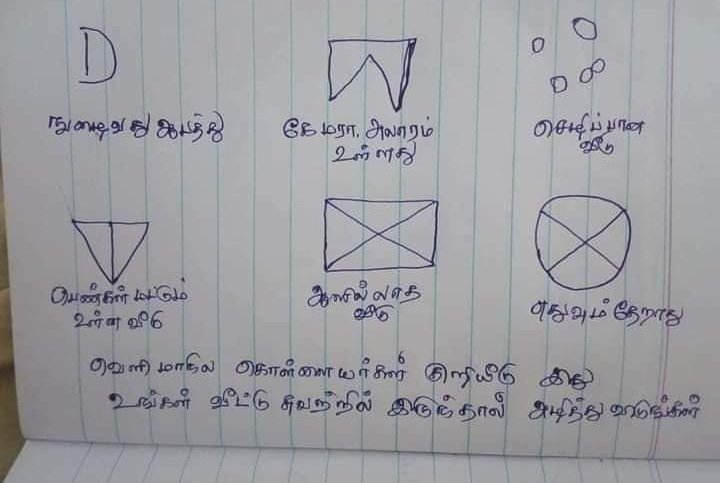 D
நுழைவது ஆபத்து
கேமரா, அலாரம்
உள்ளது
செழிப்பான
வீடு
பெண்கள் மட்டும்
உள்ள வீடு
ஆளில்லாத
வீடு
எதுவும் தேறாது
வெளி மாநில கொள்ளையர்கள் குறியீடு இது
உங்கள் வீட்டு சுவற்றில் இருந்தால் அழித்து விடுங்கள்